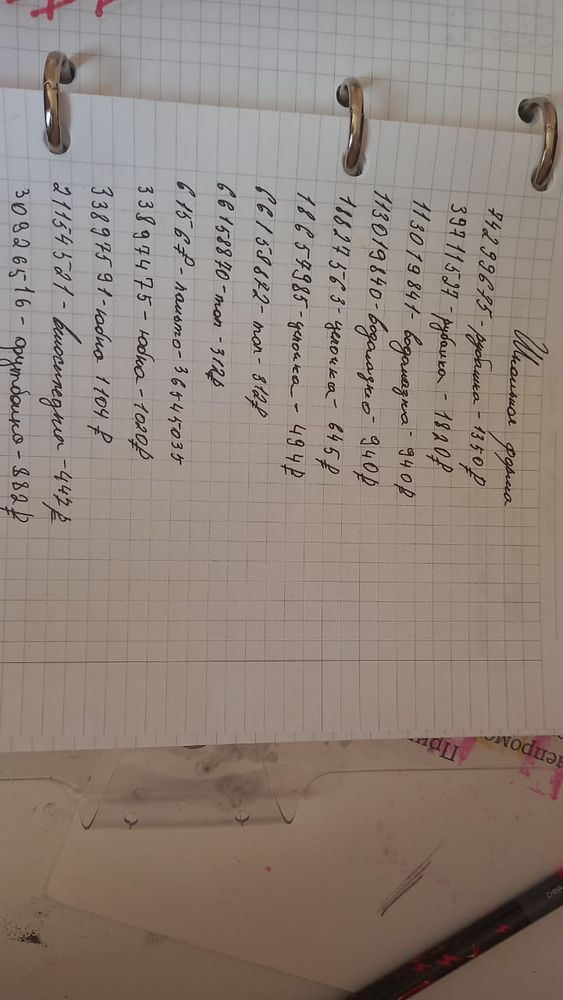 Школьная форма
74299675 - рубашка - 1350₽
39711537 - рубашка - 1820₽
113019841 - водолазка - 940₽
113019840 - водолазка - 940₽
18827563 - цепочка - 645₽
18657985 - цепочка - 494₽
66158872 - топ - 312₽
66158870 - топ - 312₽
6156₽ - пальто - 36545035
33897475 - юбка - 1020₽
33897591 - юбка 1104₽
21154521 - - 447₽
30926516 - - 882₽